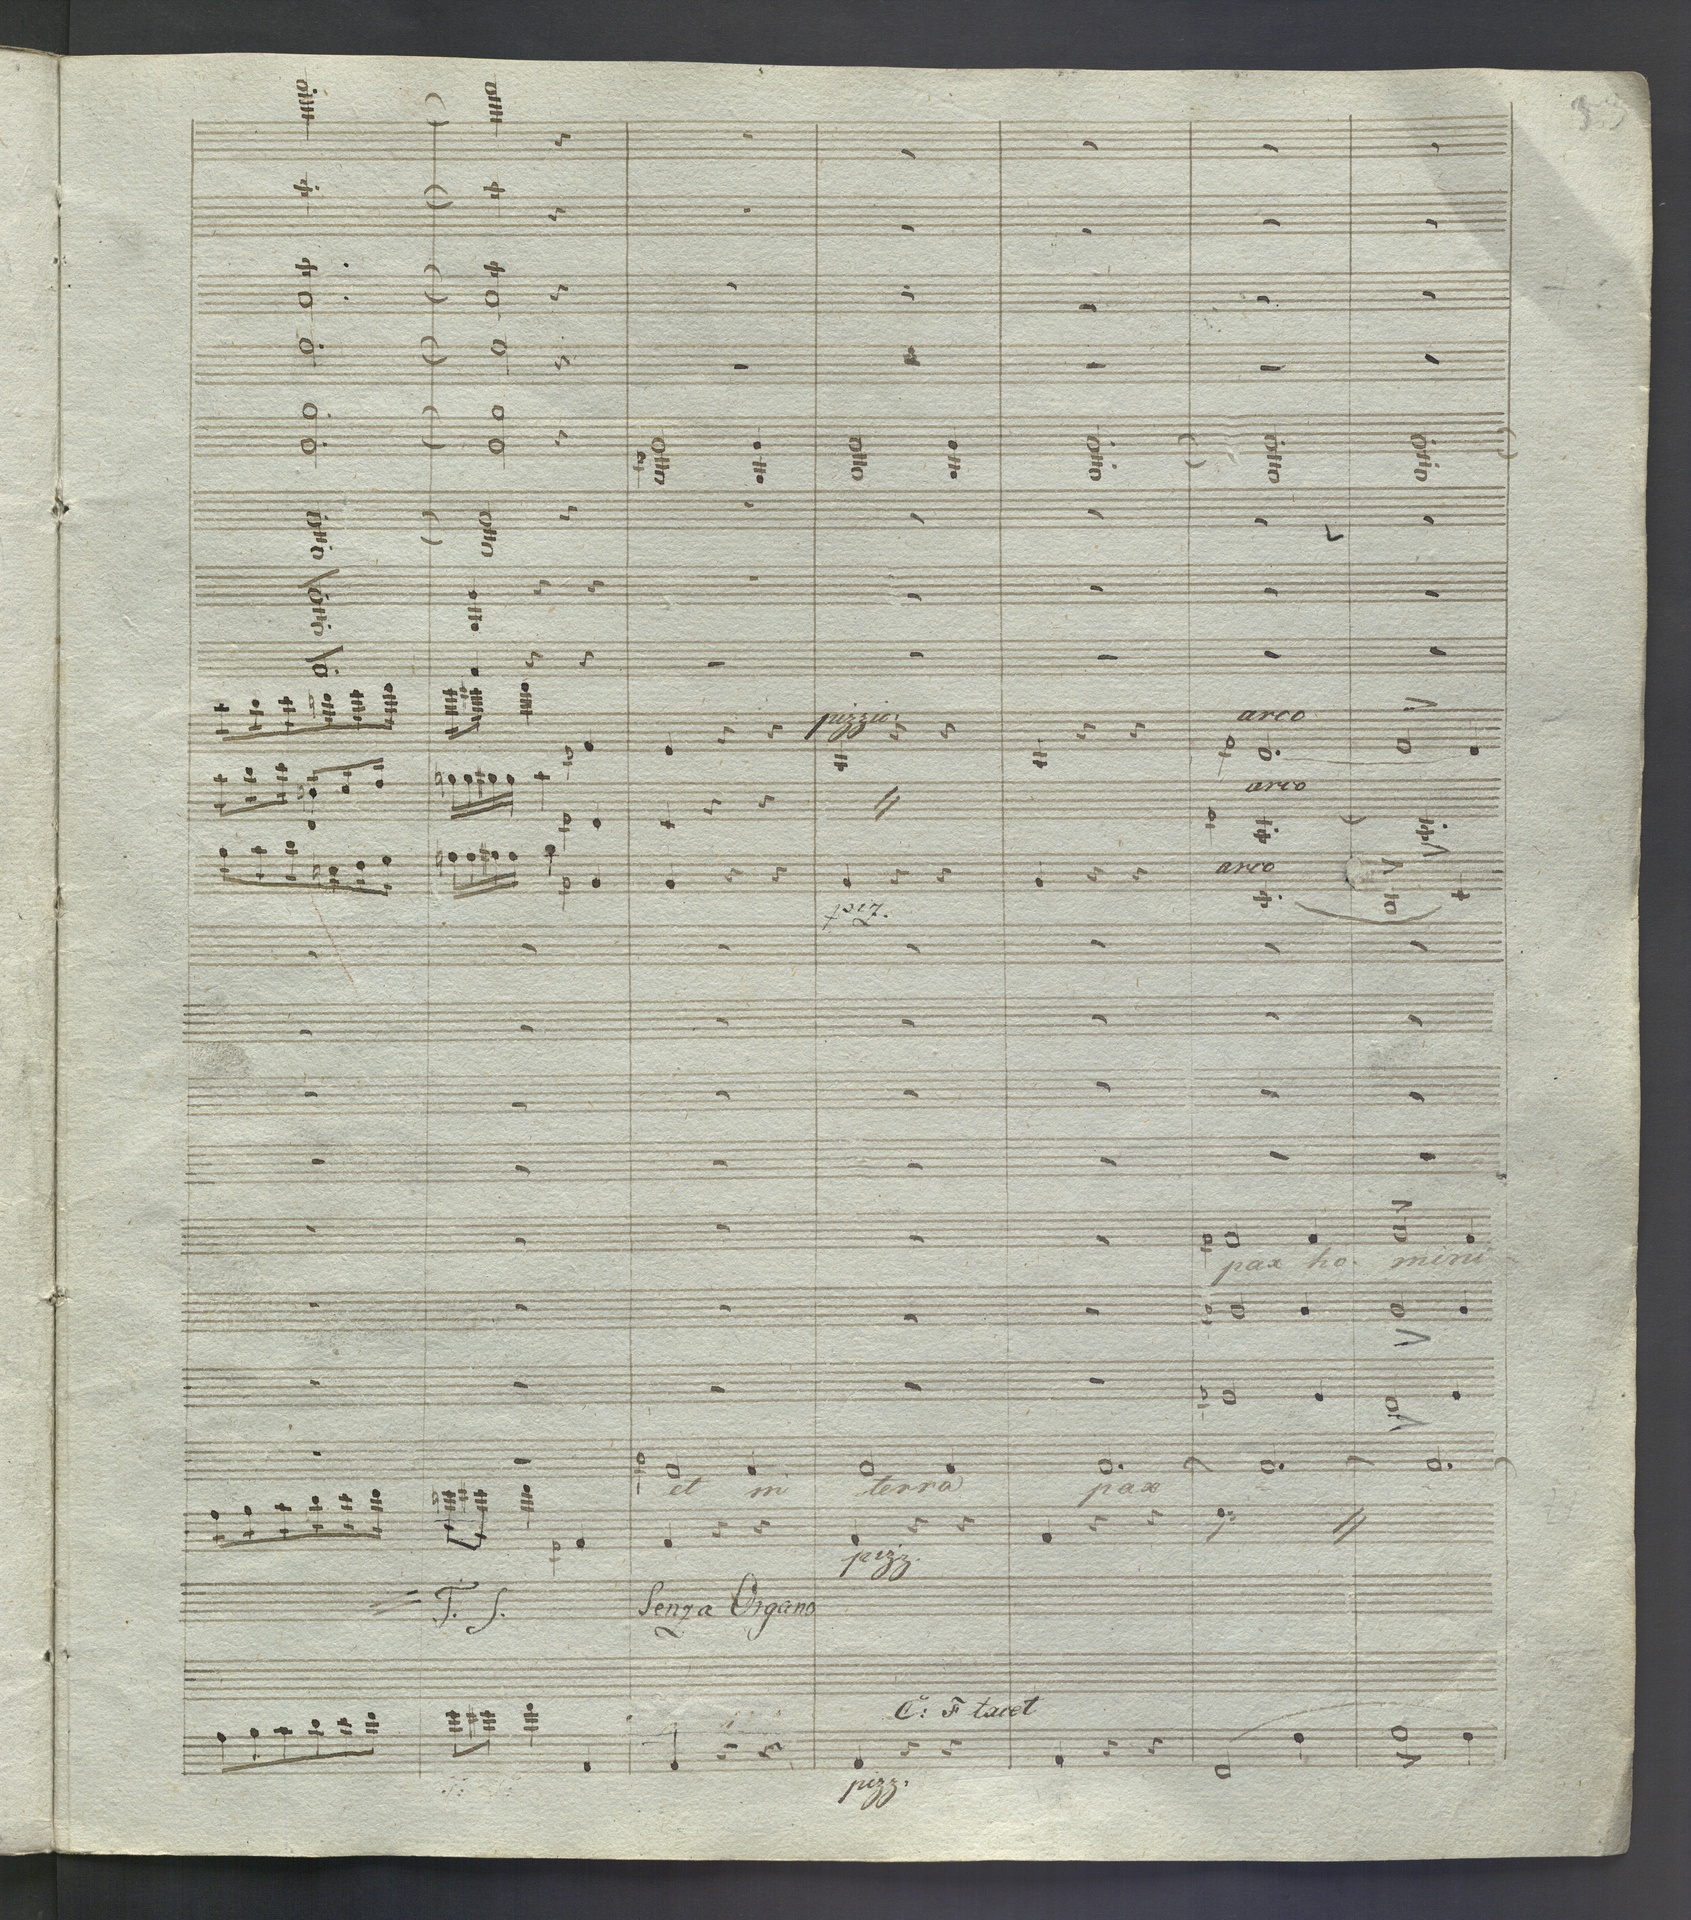 33
pizzic.
arco
arco
arco
piz.
pax ho- mini-
et in terra pax
pizz.
T. S. Senza Organo
C: F tacet
pizz.